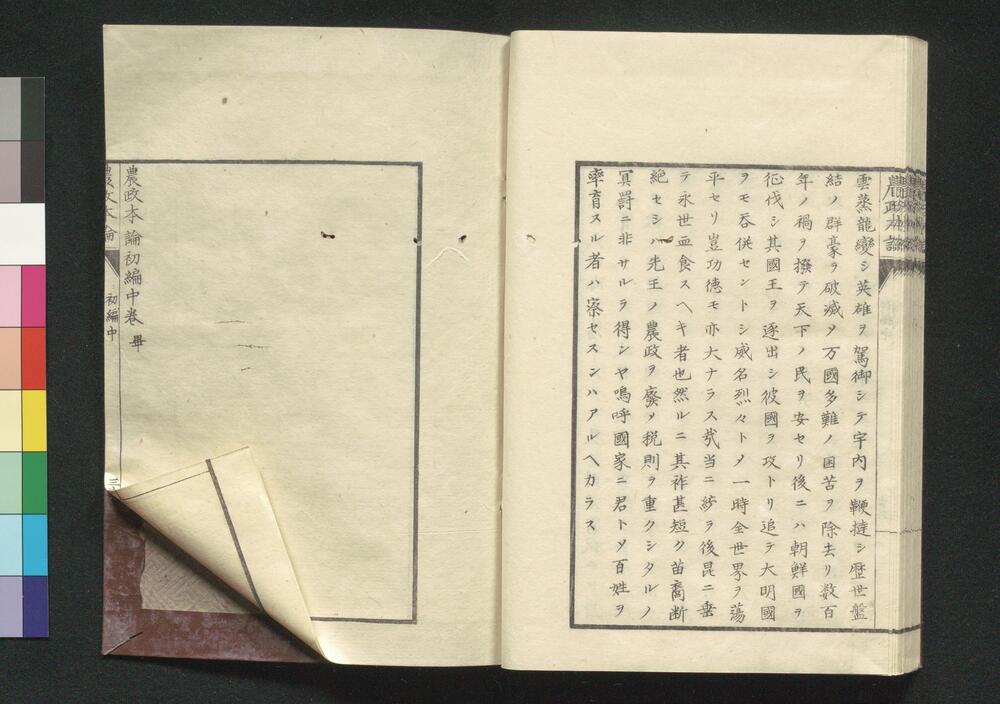 農政本論
雲蒸龍變シ英雄ヲ駕御シテ宇内ヲ鞭撻シ歴世盤
結ノ群豪ヲ破滅メ万國多難ノ困苦ヲ除去リ数百
年ノ禍ヲ撥テ天下ノ民ヲ安セリ後ニハ朝鮮國ヲ
征伐シ其國王ヲ逐出シ彼國ヲ攻トリ追テ大明國
ヲモ吞併セントシ威名烈々トメ一時全世界ヲ蕩
平セリ豈功徳モ亦大ナラス哉当ニ統ヲ後昆ニ垂
テ永世血食スヘキ者也然ルニ其祚甚短ク苗裔断
絶セシハ先王ノ農政ヲ廢メ税則ヲ重クシタルノ
冥罰ニ非サルヲ得ンヤ嗚呼國家ニ君トメ百姓ヲ
率育スル者ハ察セスンハアルヘカラス
農政本論初編中巻 畢
農政本論
初編中